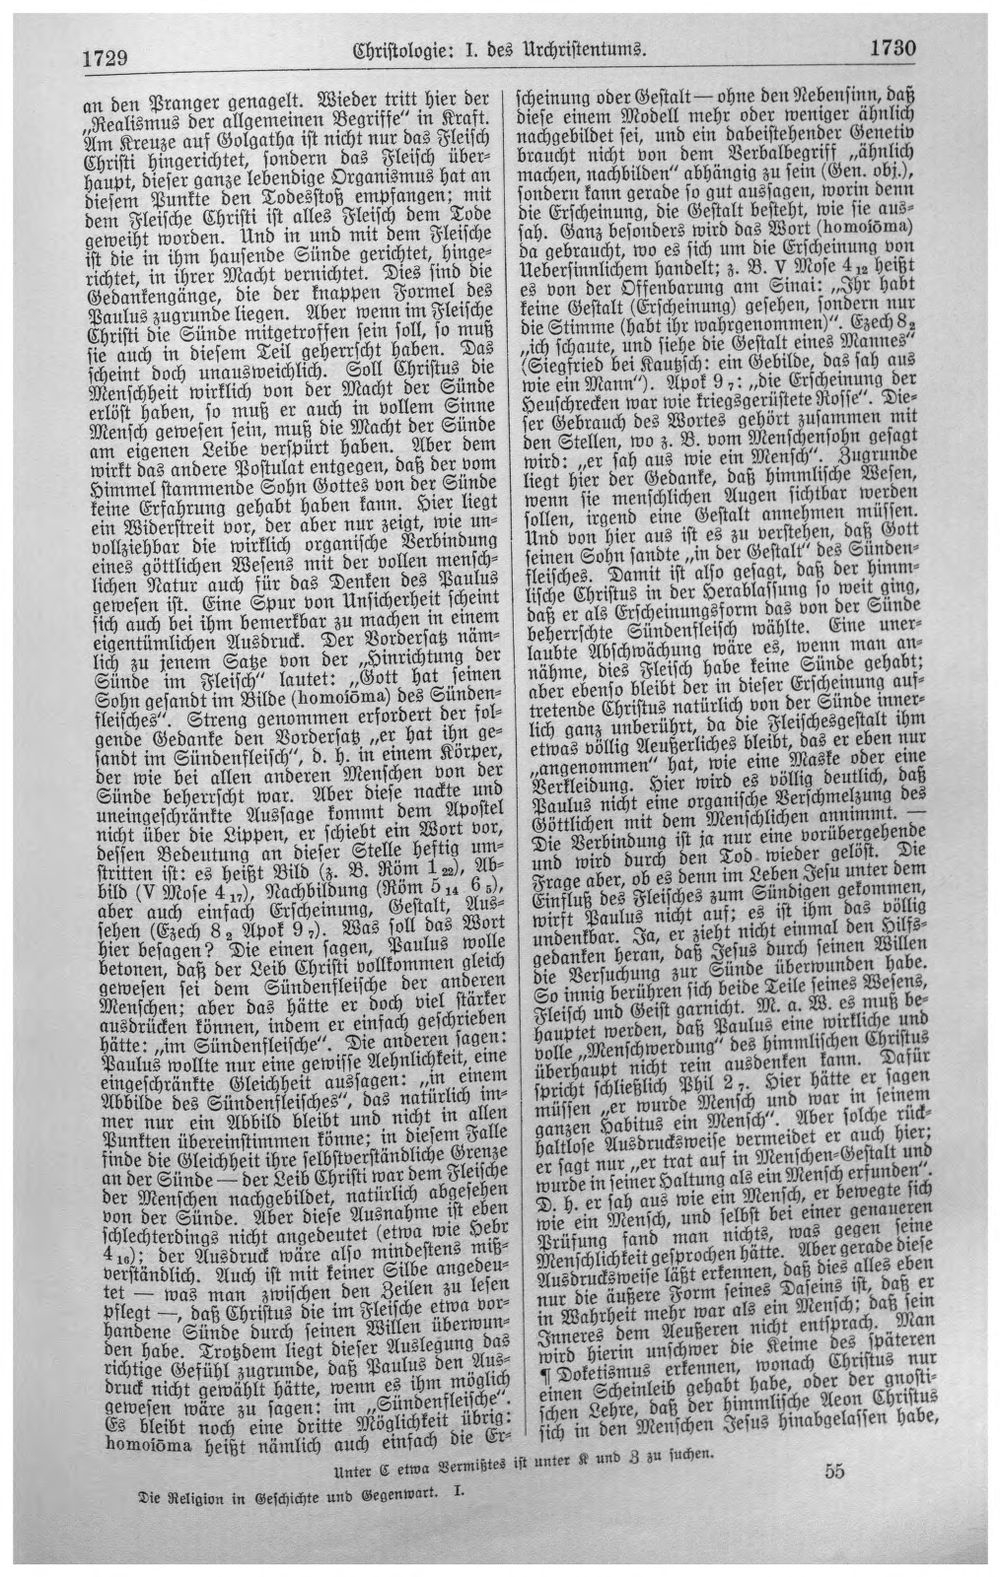 1729
Christologie: I. des Urchristentums.
1730
an den Pranger genagelt. Wieder tritt hier der
„Realismus der allgemeinen Begriffe“ in Kraft.
Am Kreuze auf Golgatha ist nicht nur das Fleisch
Christi hingerichtet, sondern das Fleisch über-
haupt, dieser ganze lebendige Organismus hat an
diesem Punkte den Todesstoß empfangen; mit
dem Fleische Christi ist alles Fleisch dem Tode
geweiht worden. Und in und mit dem Fleische
ist die in ihm hausende Sünde gerichtet, hinge-
richtet, in ihrer Macht vernichtet. Dies sind die
Gedankengänge, die der knappen Formel des
Paulus zugrunde liegen. Aber wenn im Fleische
Christi die Sünde mitgetroffen sein soll, so muß
sie auch in diesem Teil geherrscht haben. Das
scheint doch unausweichlich. Soll Christus die
Menschheit wirklich von der Macht der Sünde
erlöst haben, so muß er auch in vollem Sinne
Mensch gewesen sein, muß die Macht der Sünde
am eigenen Leibe verspürt haben. Aber dem
wirkt das andere Postulat entgegen, daß der vom
Himmel stammende Sohn Gottes von der Sünde
keine Erfahrung gehabt haben kann. Hier liegt
ein Widerstreit vor, der aber nur zeigt, wie un-
vollziehbar die wirklich organische Verbindung
eines göttlichen Wesens mit der vollen mensch-
lichen Natur auch für das Denken des Paulus
gewesen ist. Eine Spur von Unsicherheit scheint
sich auch bei ihm bemerkbar zu machen in einem
eigentümlichen Ausdruck. Der Vordersatz näm-
lich zu jenem Satze von der „Hinrichtung der
Sünde im Fleisch“ lautet: „Gott hat seinen
Sohn gesandt im Bilde (homoiōma) des Sünden-
fleisches“. Streng genommen erfordert der fol-
gende Gedanke den Vordersatz „er hat ihn ge-
sandt im Sündenfleisch“, d. h. in einem Körper,
der wie bei allen anderen Menschen von der
Sünde beherrscht war. Aber diese nackte und
uneingeschränkte Aussage kommt dem Apostel
nicht über die Lippen, er schiebt ein Wort vor,
dessen Bedeutung an dieser Stelle heftig um-
stritten ist: es heißt Bild (z. B. Röm 1 22), Ab-
bild (V Mose 4 17), Nachbildung (Röm 5 14 6 5),
aber auch einfach Erscheinung, Gestalt, Aus-
sehen (Ezech 8 2 Apok 9 7). Was soll das Wort
hier besagen? Die einen sagen, Paulus wolle
betonen, daß der Leib Christi vollkommen gleich
gewesen sei dem Sündenfleische der anderen
Menschen; aber das hätte er doch viel stärker
ausdrücken können, indem er einfach geschrieben
hätte: „im Sündenfleische“. Die anderen sagen:
Paulus wollte nur eine gewisse Aehnlichkeit, eine
eingeschränkte Gleichheit aussagen: „in einem
Abbilde des Sündenfleisches“, das natürlich im-
mer nur ein Abbild bleibt und nicht in allen
Punkten übereinstimmen könne; in diesem Falle
finde die Gleichheit ihre selbstverständliche Grenze
an der Sünde — der Leib Christi war dem Fleische
der Menschen nachgebildet, natürlich abgesehen
von der Sünde. Aber diese Ausnahme ist eben
schlechterdings nicht angedeutet (etwa wie Hebr
4 15); der Ausdruck wäre also mindestens miß-
verständlich. Auch ist mit keiner Silbe angedeu-
tet — was man zwischen den Zeilen zu lesen
pflegt —, daß Christus die im Fleische etwa vor-
handene Sünde durch seinen Willen überwun-
den habe. Trotzdem liegt dieser Auslegung das
richtige Gefühl zugrunde, daß Paulus den Aus-
druck nicht gewählt hätte, wenn es ihm möglich
gewesen wäre zu sagen: im „Sündenfleische“.
Es bleibt noch eine dritte Möglichkeit übrig:
homoiōma heißt nämlich auch einfach die Er-
scheinung oder Gestalt — ohne den Nebensinn, daß
diese einem Modell mehr oder weniger ähnlich
nachgebildet sei, und ein dabeistehender Genetiv
braucht nicht von dem Verbalbegriff „ähnlich
machen, nachbilden“ abhängig zu sein (Gen. obj.),
sondern kann gerade so gut aussagen, worin denn
die Erscheinung, die Gestalt besteht, wie sie aus-
sah. Ganz besonders wird das Wort (homoiōma)
da gebraucht, wo es sich um die Erscheinung von
Uebersinnlichem handelt; z. B. V Mose 4 12 heißt
es von der Offenbarung am Sinai: „Ihr habt
keine Gestalt (Erscheinung) gesehen, sondern nur
die Stimme (habt ihr wahrgenommen)“. Ezech 8 2
„ich schaute, und siehe die Gestalt eines Mannes“
(Siegfried bei Kautzsch: ein Gebilde, das sah aus
wie ein Mann“). Apok 9 7: „die Erscheinung der
Heuschrecken war wie kriegsgerüstete Rosse“. Die-
ser Gebrauch des Wortes gehört zusammen mit
den Stellen, wo z. B. vom Menschensohn gesagt
wird: „er sah aus wie ein Mensch“. Zugrunde
liegt hier der Gedanke, daß himmlische Wesen,
wenn sie menschlichen Augen sichtbar werden
sollen, irgend eine Gestalt annehmen müssen.
Und von hier aus ist es zu verstehen, daß Gott
seinen Sohn sandte „in der Gestalt“ des Sünden-
fleisches. Damit ist also gesagt, daß der himm-
lische Christus in der Herablassung so weit ging,
daß er als Erscheinungsform das von der Sünde
beherrschte Sündenfleisch wählte. Eine uner-
laubte Abschwächung wäre es, wenn man an-
nähme, dies Fleisch habe keine Sünde gehabt;
aber ebenso bleibt der in dieser Erscheinung auf-
tretende Christus natürlich von der Sünde inner-
lich ganz unberührt, da die Fleischesgestalt ihm
etwas völlig Aeußerliches bleibt, das er eben nur
„angenommen“ hat, wie eine Maske oder eine
Verkleidung. Hier wird es völlig deutlich, daß
Paulus nicht eine organische Verschmelzung des
Göttlichen mit dem Menschlichen annimmt. —
Die Verbindung ist ja nur eine vorübergehende
und wird durch den Tod wieder gelöst. Die
Frage aber, ob es denn im Leben Jesu unter dem
Einfluß des Fleisches zum Sündigen gekommen,
wirft Paulus nicht auf; es ist ihm das völlig
undenkbar. Ja, er zieht nicht einmal den Hilfs-
gedanken heran, daß Jesus durch seinen Willen
die Versuchung zur Sünde überwunden habe.
So innig berühren sich beide Teile seines Wesens,
Fleisch und Geist garnicht. M. a. W. es muß be-
hauptet werden, daß Paulus eine wirkliche und
volle „Menschwerdung“ des himmlischen Christus
überhaupt nicht rein ausdenken kann. Dafür
spricht schließlich Phil 2 7. Hier hätte er sagen
müssen „er wurde Mensch und war in seinem
ganzen Habitus ein Mensch“. Aber solche rück-
haltlose Ausdrucksweise vermeidet er auch hier;
er sagt nur „er trat auf in Menschen-Gestalt und
wurde in seiner Haltung als ein Mensch erfunden“.
D. h. er sah aus wie ein Mensch, er bewegte sich
wie ein Mensch, und selbst bei einer genaueren
Prüfung fand man nichts, was gegen seine
Menschlichkeit gesprochen hätte. Aber gerade diese
Ausdrucksweise läßt erkennen, daß dies alles eben
nur die äußere Form seines Daseins ist, daß er
in Wahrheit mehr war als ein Mensch; daß sein
Inneres dem Aeußeren nicht entsprach. Man
wird hierin unschwer die Keime des späteren
¶ Doketismus erkennen, wonach Christus nur
einen Scheinleib gehabt habe, oder der gnosti-
schen Lehre, daß der himmlische Aeon Christus
sich in den Menschen Jesus hinabgelassen habe,
Unter C etwa Vermißtes ist unter K und Z zu suchen.
Die Religion in Geschichte und Gegenwart. I.
55